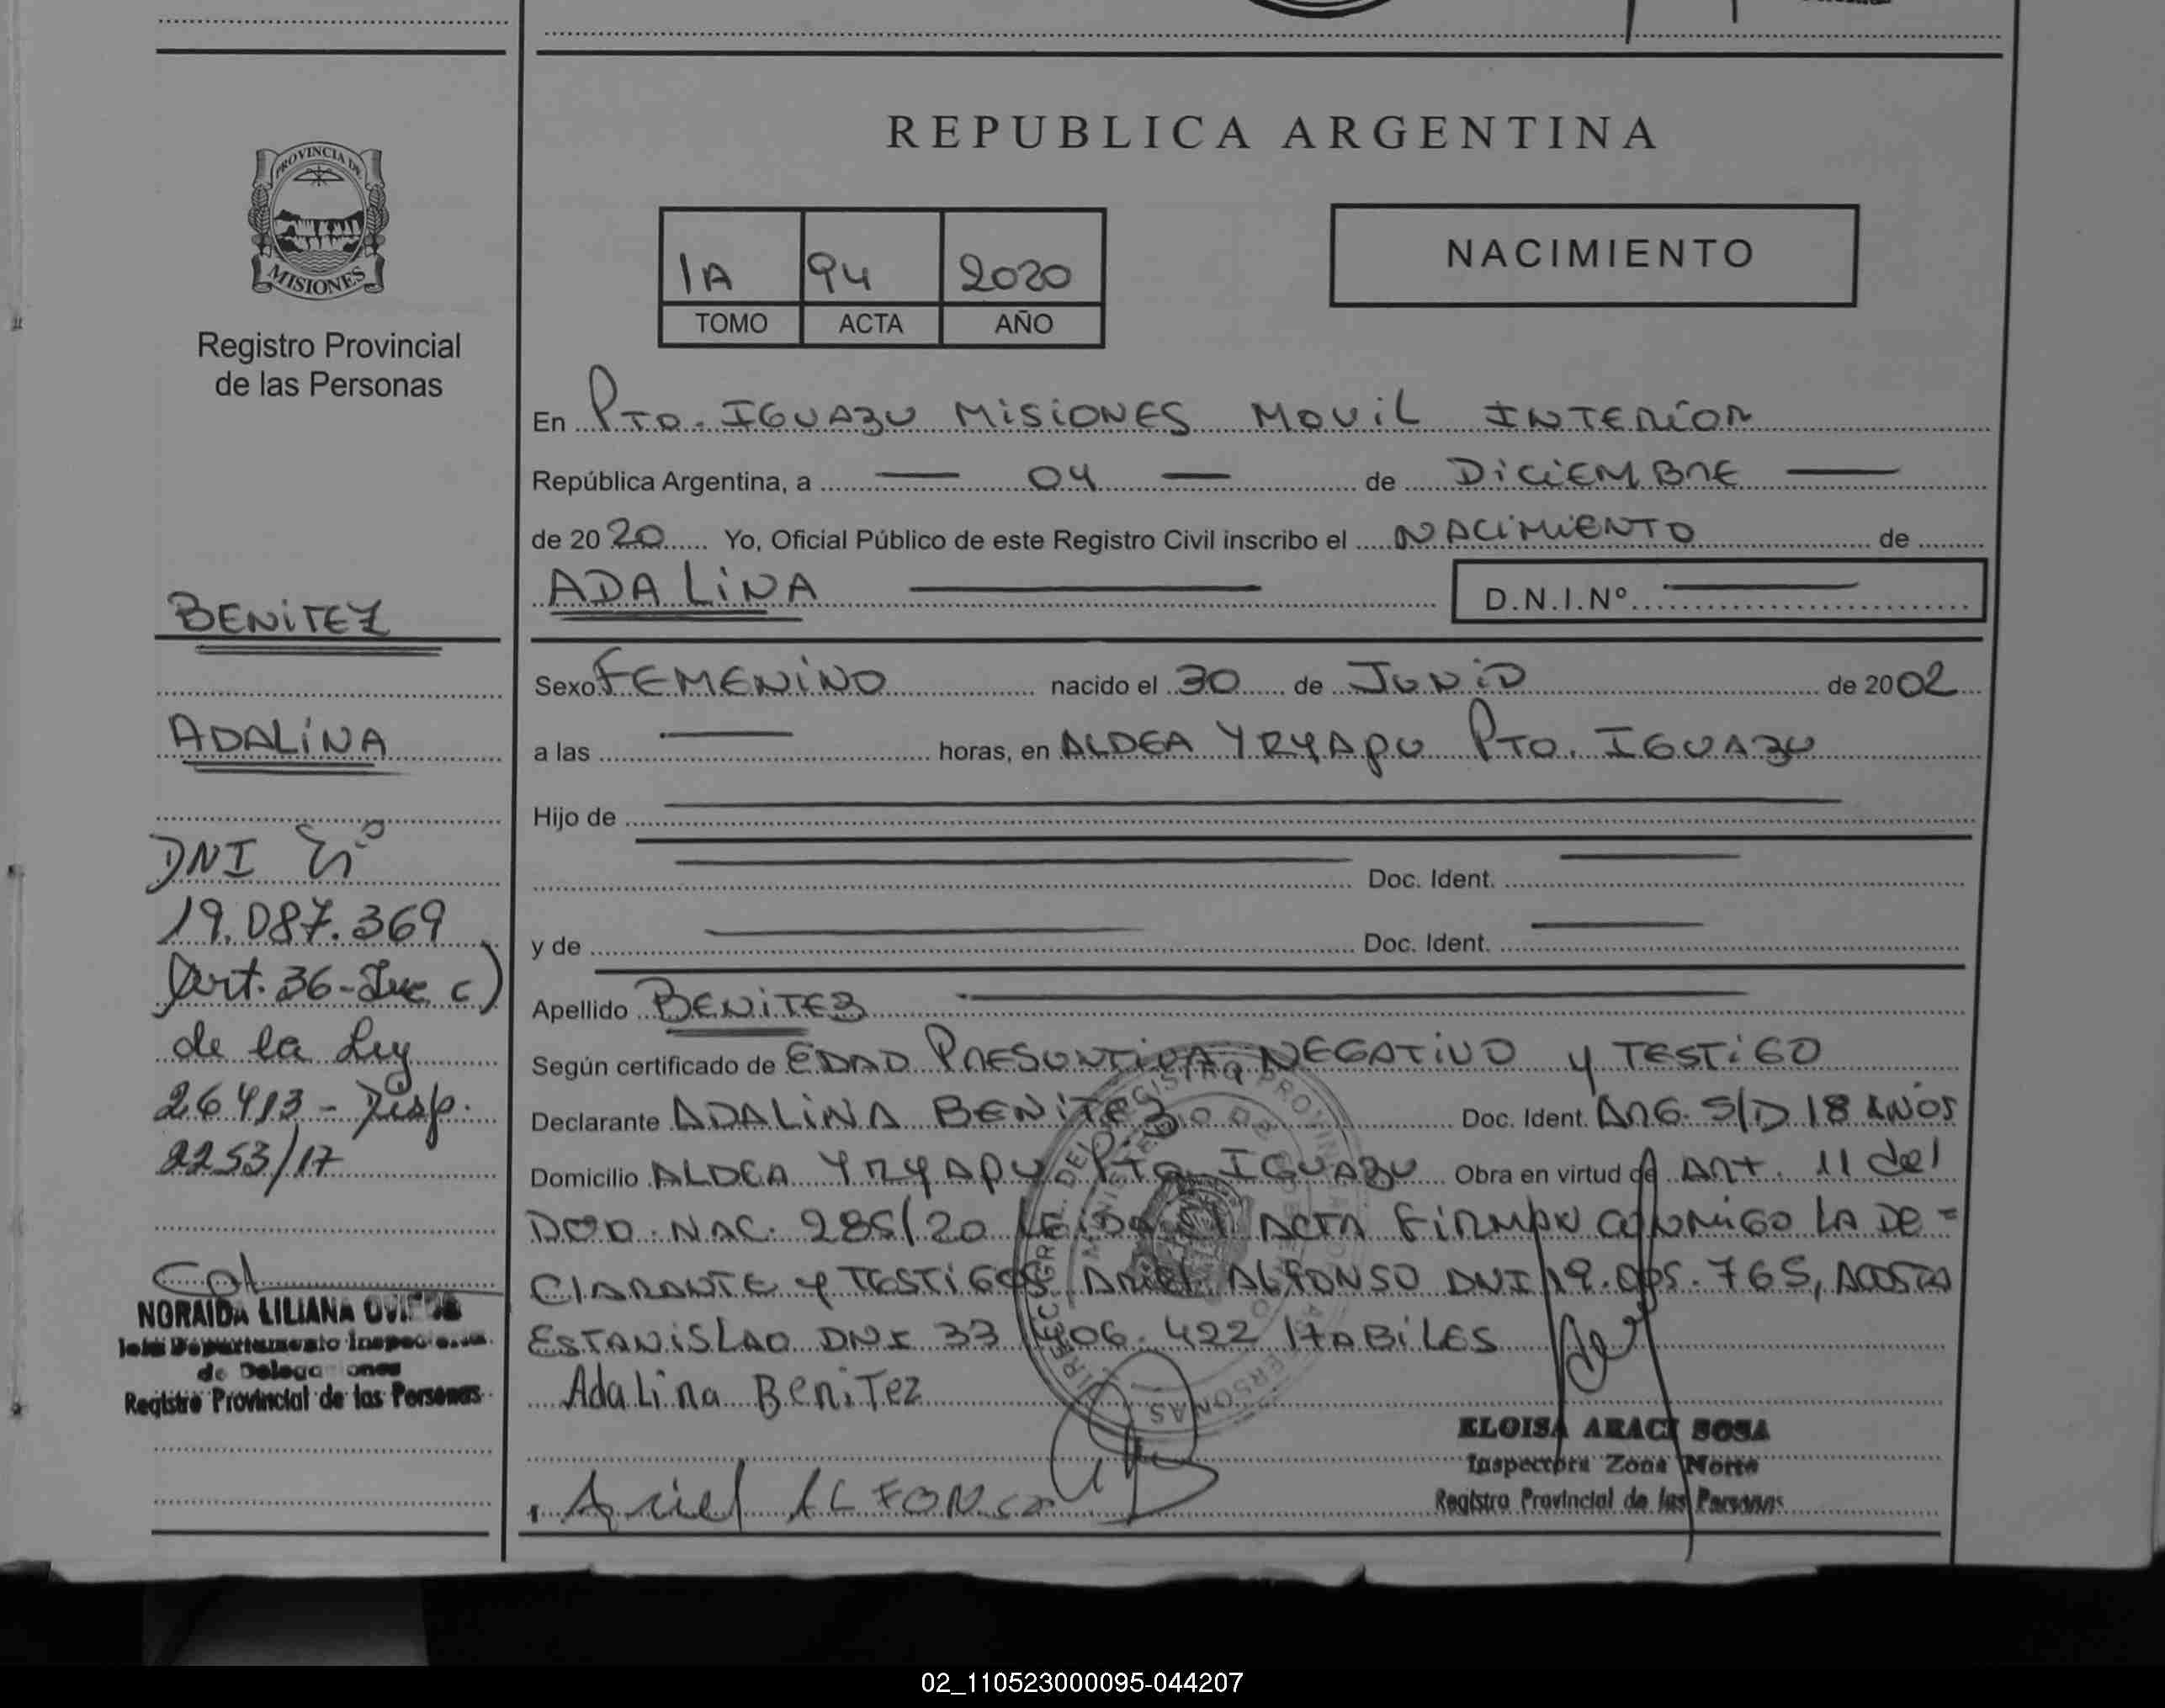 REPUBLICA ARGENTINA
PROVINCIA DE
MISIONES
Registro Provincial
de las Personas
1A 94 2020
TOMO ACTA AÑO
NACIMIENTO
En PTO. IGUAZU MISIONES MOVIL INTERIOR
República Argentina, a — 04 — de DICIEMBRE —
de 20 20 Yo, Oficial Público de este Registro Civil inscribo el NACIMIENTO de
ADALINA — D.N.I.Nº —
BENITEZ
ADALINA
DNI Nº
19.087.369
Art. 36-Inc c)
de la Ley
26413 - Disp.
2253/17
NORAIDA LILIANA
Departamento
de
Registro Provincial de las Personas
Sexo FEMENINO nacido el 30 de JUNIO de 20 02
a las — horas, en ALDEA YRYAPU PTO. IGUAZU
Hijo de —
— Doc. Ident. —
y de — Doc. Ident. —
Apellido BENITEZ —
Según certificado de EDAD PRESUNTIVA NEGATIVO y TESTIGO
Declarante ADALINA BENITEZ Doc. Ident. ARG. S/D 18 AÑOS
Domicilio ALDEA YRYAPU PTO IGUAZU Obra en virtud de ART. 11 del
NAC. 285/20 LEIDA EL ACTA FIRMAN CONMIGO LA DE=
CLARANTE y TESTIGOS ARIEL ALFONSO DNI 19.095.765, ACOSTA
ESTANISLAO DNI 33 406.422 HABILES
Adalina Benitez
Ariel ALFONSO
ELOISA ARACI SOSA
Inspectora Zona Norte
Registro Provincial de las Personas
02_110523000095-044207